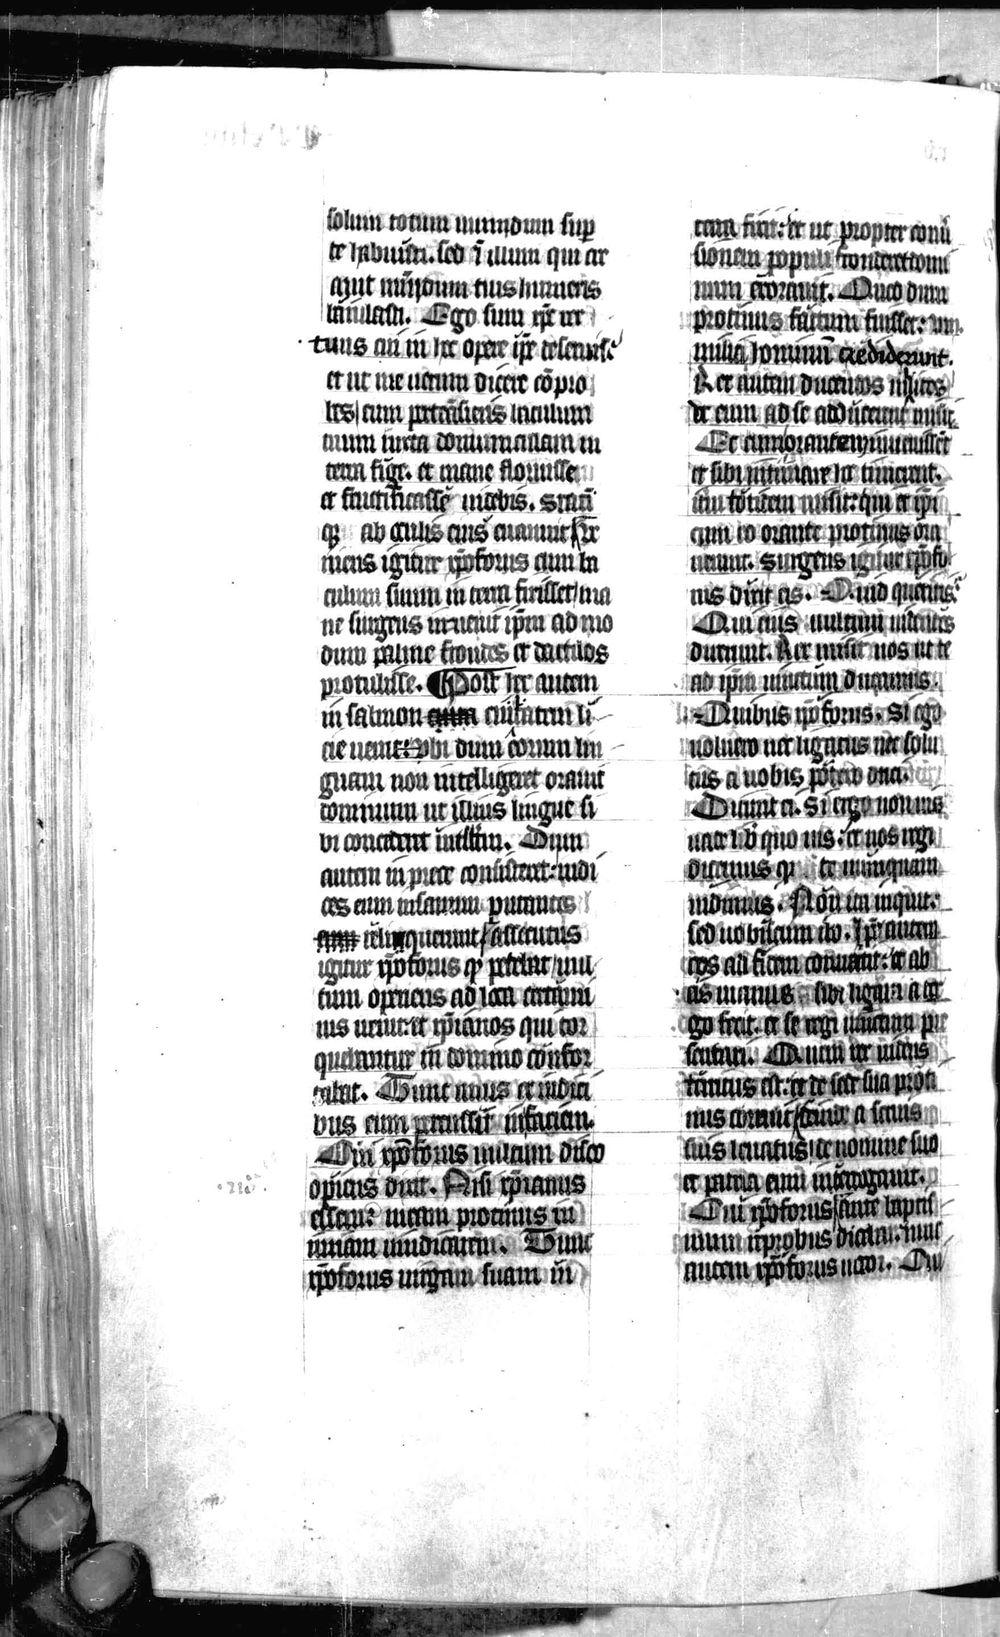 solum totum mundum sup
te habuisti. sed ī illum qui cre
auit mūdum tuis humeris
baiulasti. Ego sum xp̄c rex
tuus cui in hoc opere ip̄e deseruis
et ut me uerum dicere cō pro
bes cum pertrāsieris baculum
tuum iuxta domunculam in
terra fige. et mane floruisse
et fructificasse uidebis. Stati
qȝ ab oculis eius euanuit
niens igitur xp̄oforus cum ba
culum suum in terra fixisset / ma
ne surgens inuenit ip̄m ad mo
dum palme frondes et dactilos
protulisse. Post hec autem
in salmon ciuitatem li
cie uenit Vbi dum eorum lin
guam non intelligeret orauit
dominum ut illius lingue si
bi concederet intellm̄. Dum
autem in prece consisteret: iudi
ces eum insanum putantes
reliquerunt / assecutus
igitur xp̄oforus qđ petebat / uul
tum operiens ad loca certami
nis uenit et xp̄ianos qui tor
quebantur in domino confor
tabat. Tunc unus ex iudici
bus eum percussit in faciem.
Cui xp̄oforus uultum disco
operiens dixit. Nisi xp̄ianus
essem: meam protinus in
iuriam uindicarem. Tunc
xp̄oforus uirgam suam in
terra fixit: et ut propter conu
sionem populi fronderet domi
num exorauit. Quod dum
protinus factum fuisset:
milia hominum crediderunt.
Rex autem ducentos milites
ut eum ad se adducerent misit.
Et cum orantem inuenissent
et sibi intimare hoc timerent.
itm̄ totidem misit: qui et ip̄i
cum eo orante protinus ora
uerunt. Surgens igitur xp̄ofo
rus dixit eis. Quid queritis
Qui eius uultum uidentes
dixerunt. Rex misit nos ut te
ad ip̄m uinctum ducamus.
Quibus xp̄oforus. Si ego
uoluero nec ligatus nec solu
tus a uobis potero duci.
Dicunt ei. Si ergo non uis
uade ubi quo uis: et nos regi
dicemus qđ te nunquam
uidimus. Non ita inquit:
sed uobiscum ibo. Ip̄e autem
eos ad fidem conuertit: et ab
eis manus sibi ligari a ter
go fecit. et se regi uinctum pre
sentari. Quem rex uidens
territus est: et de sede sua proti
nus corruit / deinde a seruis
suis leuatus de nomine suo
et patria eum interrogauit.
Cui xp̄oforus / ante baptis
mum reprobus dictus. nunc
autem xp̄oforus uocor. Cui